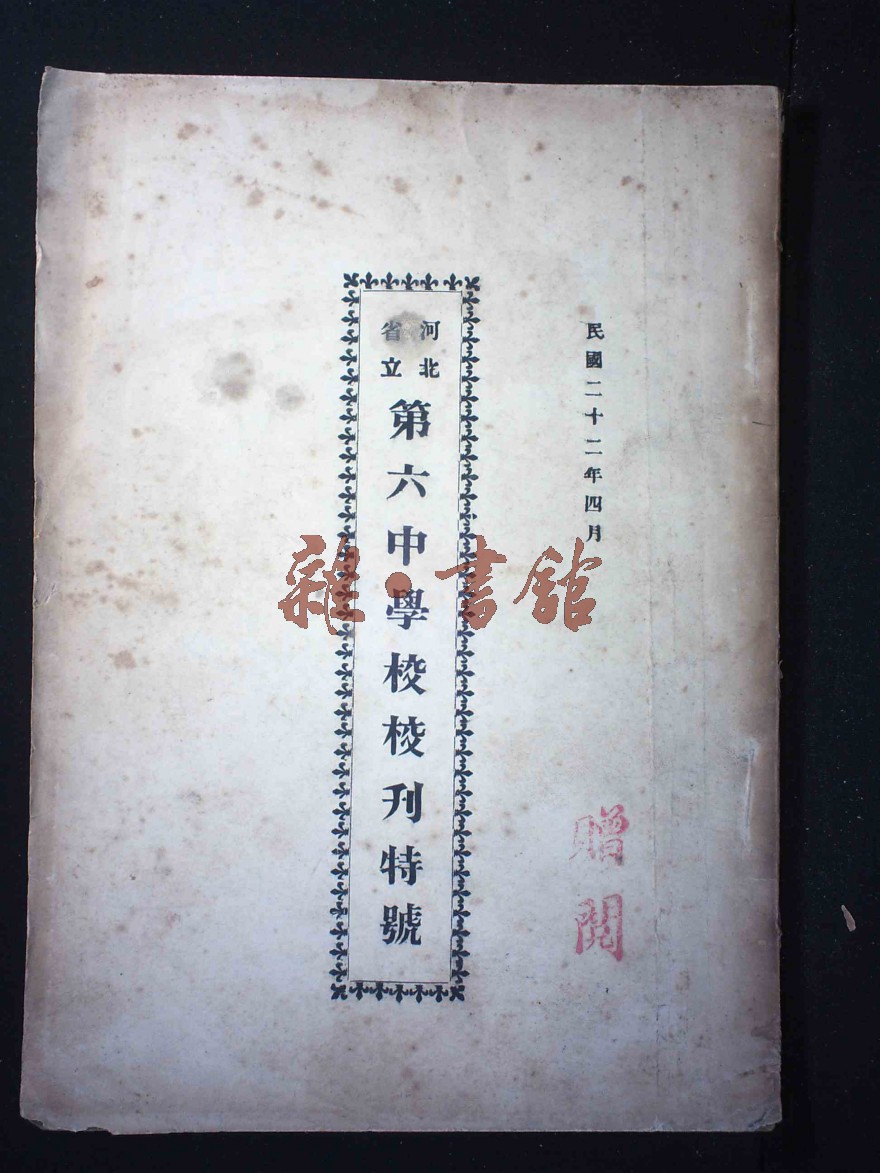 民國二十二年四月
河北省立
第六中學校校刊特號
贈閱
雜·書館